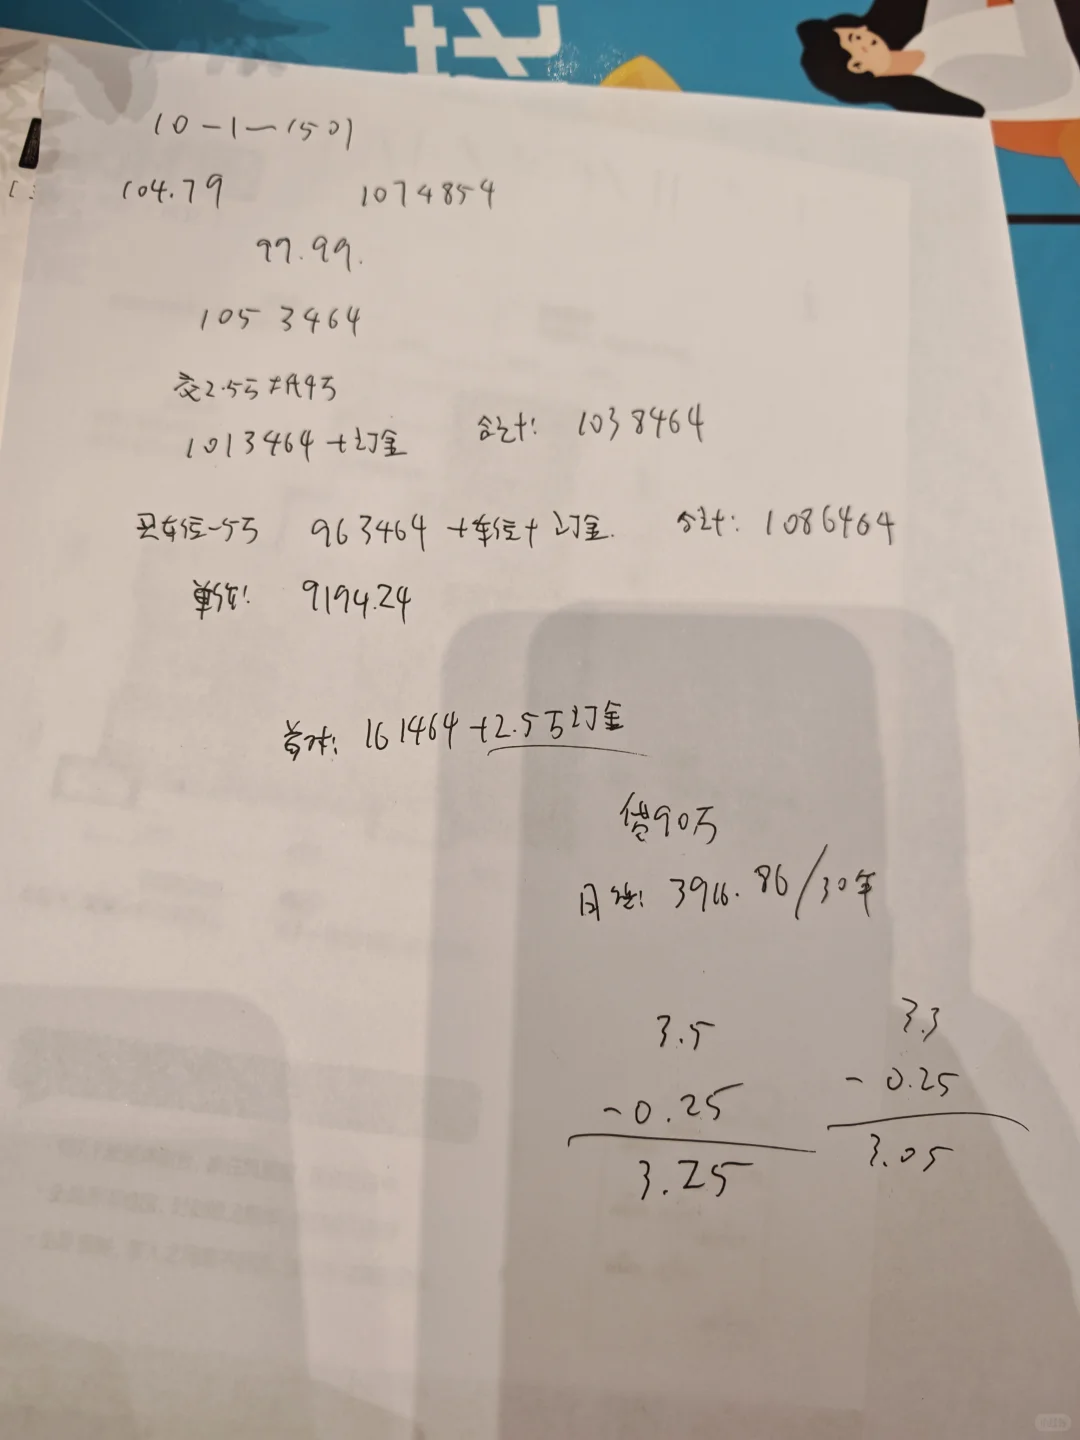 10-1-1501
104.79 1074854
99.99.
1053464
交2.5万抵4万
1013464+订金 合计: 1038464
买车位-5万 963464+车位+订金. 合计: 1086464
单价: 9194.24
首付: 161464+2.5万订金
贷90万
月供: 3916.86/30年
3.5 3.3
-0.25 -0.25
3.25 3.05